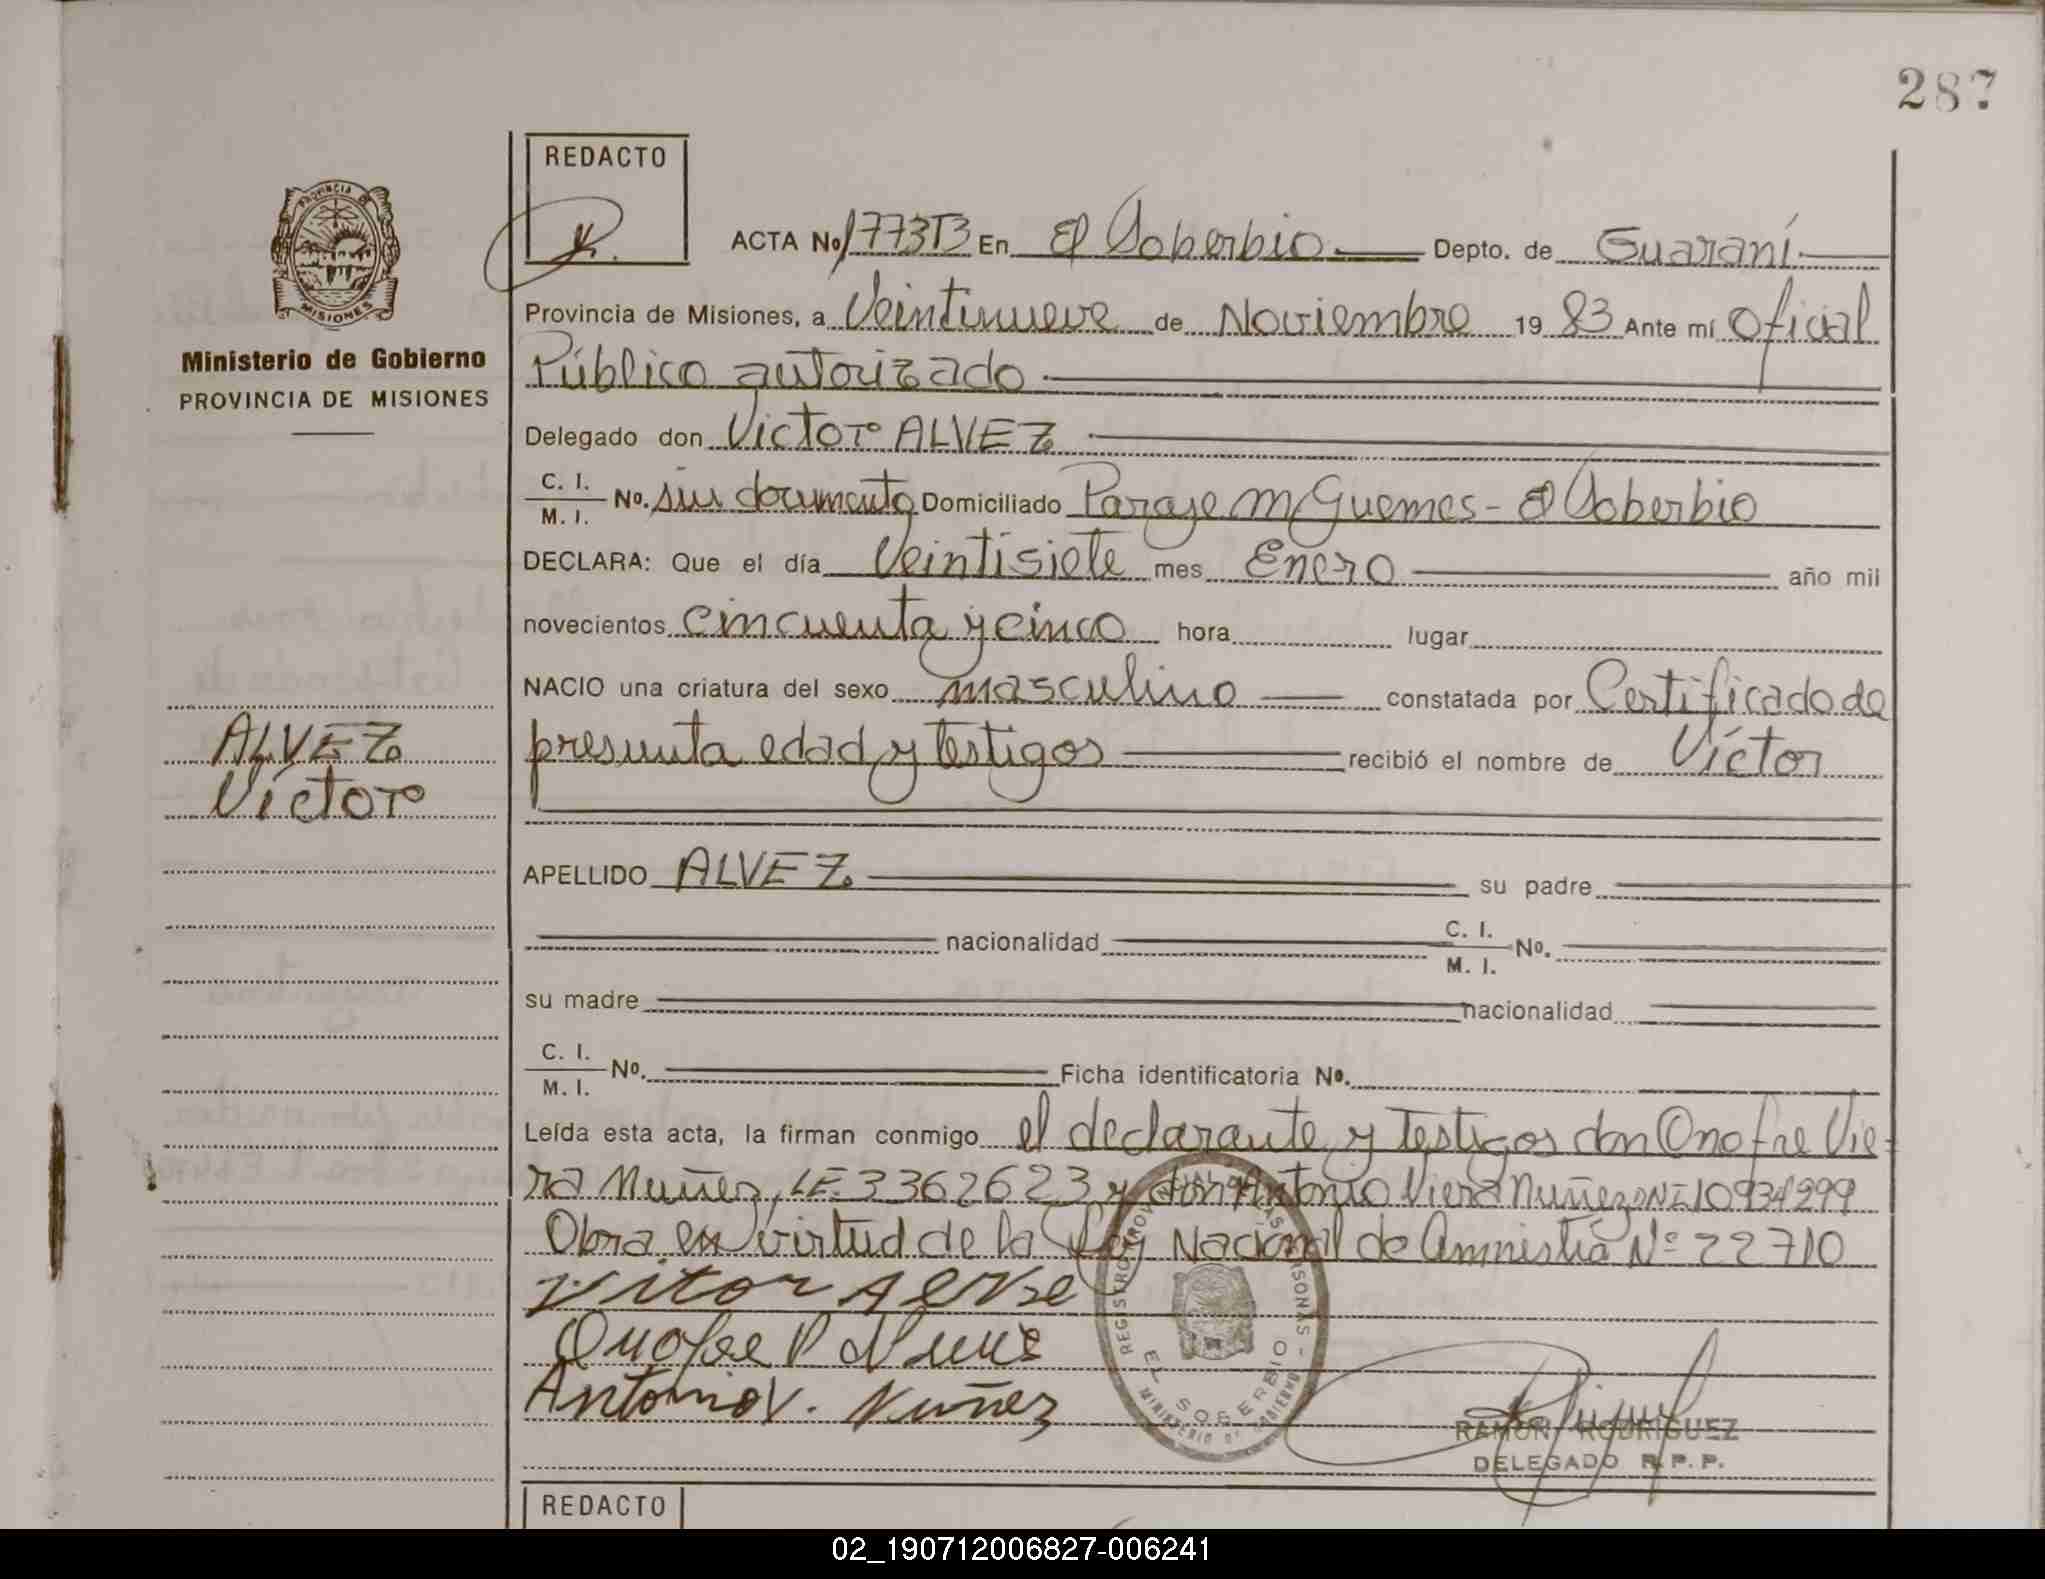 287
REDACTO
ACTA No 1773T3 En El Soberbio Depto. de Guaraní
PROVINCIA DE
MISIONES
Provincia de Misiones, a Veintinueve de Noviembre 19 83 Ante mí Oficial
Ministerio de Gobierno
Público autorizado
PROVINCIA DE MISIONES
Delegado don Victor ALVEZ
C. I.
M. I.
No. sin documento Domiciliado Paraje M Guemes - El Soberbio
DECLARA: Que el día Veintisiete mes Enero año mil
novecientos cincuenta y cinco hora lugar
NACIO una criatura del sexo masculino constatada por Certificado de
ALVEZ
presunta edad y testigos recibió el nombre de Víctor
Victor
APELLIDO ALVEZ su padre
nacionalidad C. I. M. I. No.
su madre nacionalidad
C. I.
M. I.
No. Ficha identificatoria No.
Leída esta acta, la firman conmigo el declarante y testigos don Onofre Vie-
ra Nuñez, LE 3362623 y don Antonio Viera Nuñez DNI 10934299
Obra en virtud de la Ley Nacional de Amnistia Nº 22710
Vitor Alvse
Onofre V Nuñe
Antonio V. Nuñez
EL SOBERBIO
MINISTERIO DE GOBIERNO
RAMON RODRIGUEZ
DELEGADO R.P.P.
REDACTO
02_190712006827-006241